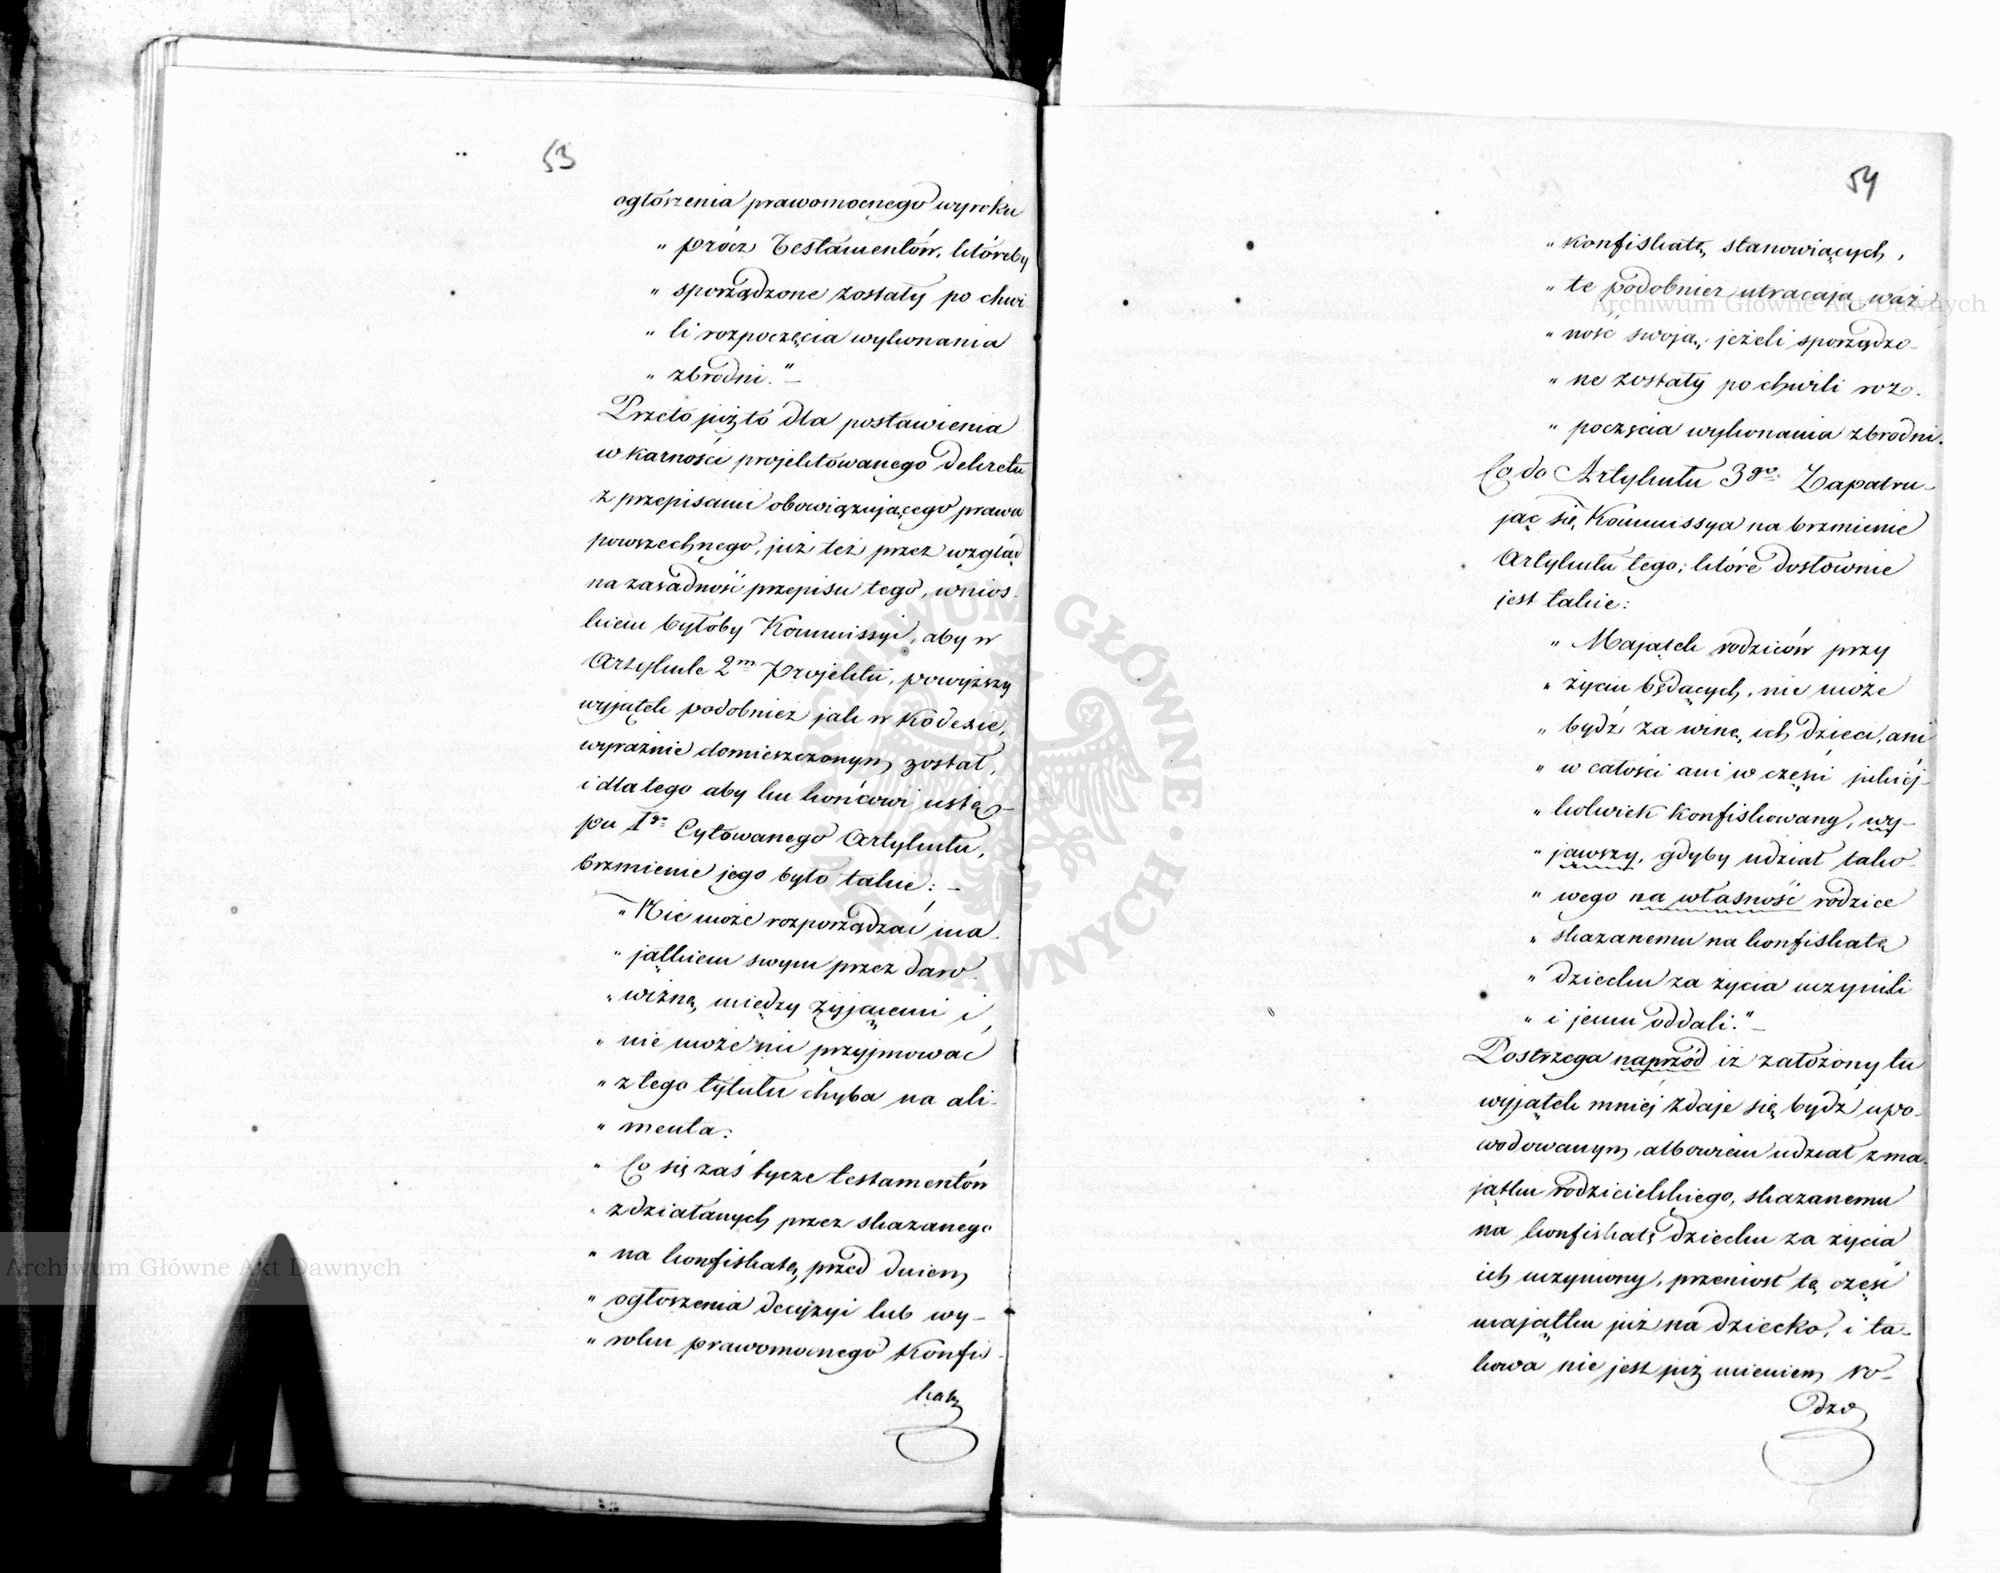 53
ogłoszenia prawomocnego wyroku
„ prócz Testamentów, któreby
„ sporządzone zostały po chwi
„ li rozpoczęcia wykonania
„ zbrodni.“ –
Przeto już to dla postawienia
w karności projektowanego dekretu
z przepisami obowiązującego prawa
powszechnego, już też przez wzgląd
na zasadność przepisu tego, wnios-
kiem byłoby Kommissyi, aby w
Artykule 2m Projektu, powyższy
wyjątek podobnież jak w Kodexie,
wyraźnie domieszczonym został,
i dla tego aby ku końcowi ustę-
pu 1go Cytowanego Artykułu,
brzmienie jego było takie: –
„ Nie może rozporządzać ma-
„ jątkiem swym przez daro-
„ wiznę między żyjącemi i
„ nie może nic przyjmować
„ z tego tytułu chyba na ali-
„ menta.
„ Co się zaś tycze testamentów
„ zdziałanych przez skazanego
„ na konfiskatę, przed dniem
„ ogłoszenia decyzyi lub wy-
„ roku prawomocnego Konfis-
katę
54
„ Konfiskatę stanowiących,
„ te podobnież utracają waż
„ ność swoją, jeżeli sporządzo-
„ ne zostały po chwili roz-
„ poczęcia wykonania zbrodni.
Co do Artykułu 3go Zapatru-
jąc się Kommissya na brzmienie
Artykułu tego, które dosłownie
jest takie:
„ Majątek rodziców przy
„ życiu będących, nie może
„ bydź za winę ich dzieci, ani
„ w całości ani w części jakiej-
„ kolwiek konfiskowany, wy-
„ jąwszy, gdyby udział tako-
„ wego na własność rodzice
„ skazanemu na konfiskatę
„ dziecku za życia uczynili
„ i jemu oddali.“ –
Dostrzega naprzód iż założony tu
wyjątek mniej zdaje się bydź upo-
wodowanym, albowiem udział z ma-
jątku rodzicielskiego, skazanemu
na konfiskatę dziecku za życia
ich uczyniony, przeniósł tę część
majątku już na dziecko, i ta-
kowa nie jest już mieniem ro-
dzo
Archiwum Główne Akt Dawnych
Archiwum Główne Akt Dawnych
ARCHIWUM GŁÓWNE AKT DAWNYCH